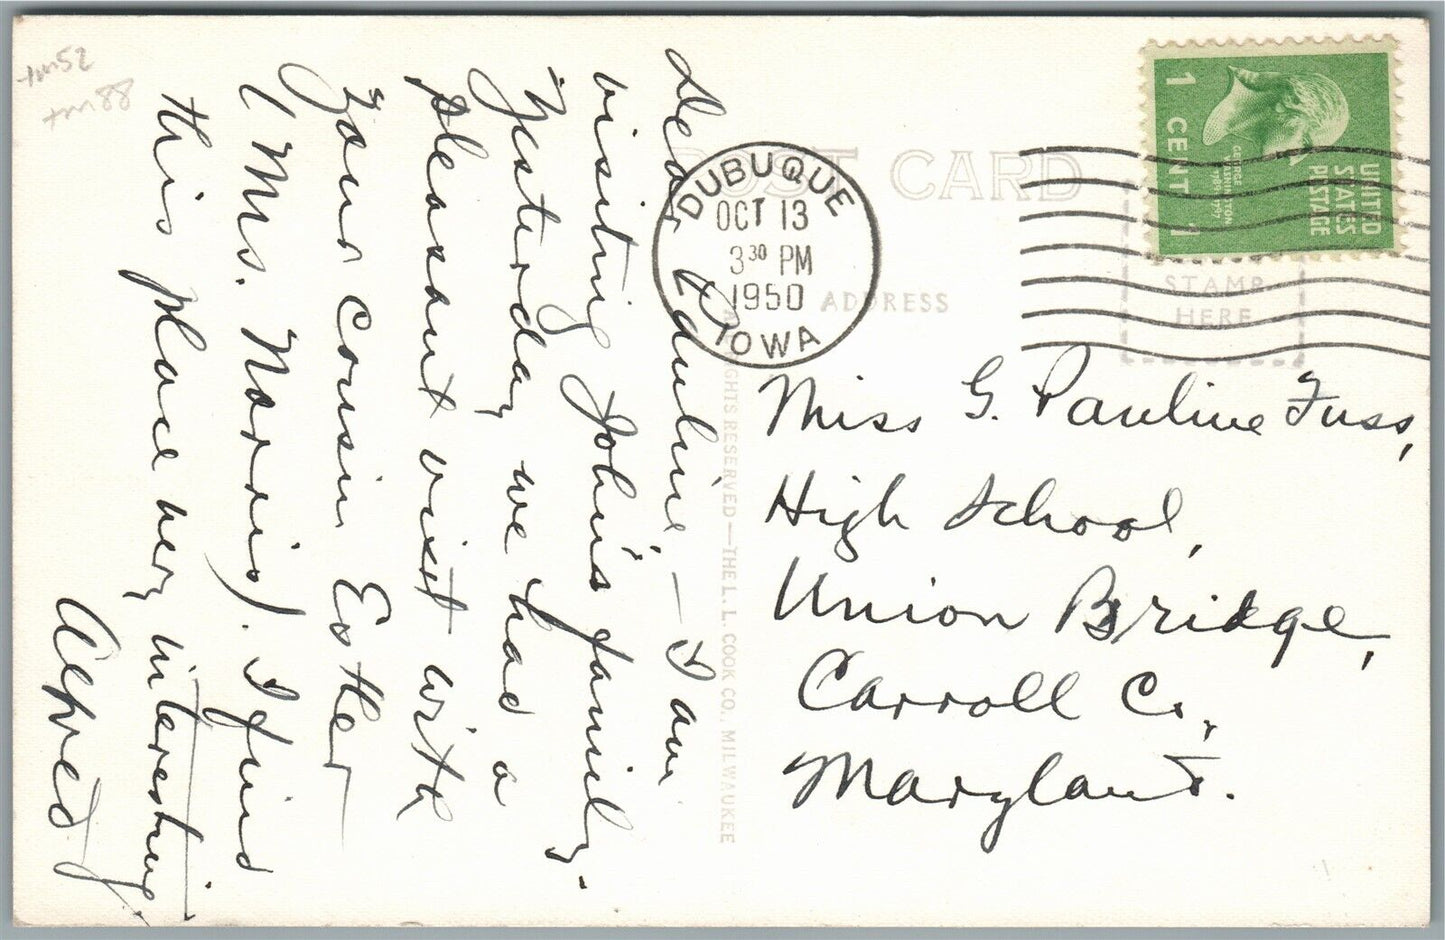 tm52
tm88
POST CARD
ADDRESS
STAMP
HERE
DUBUQUE
OCT 13
3 30 PM
1950
IOWA
UNITED
STATES
POSTAGE
GEORGE
WASHINGTON
1 CENT 1
Dear Pauline, — I am
visiting John's family.
Yesterday we had a
pleasant visit with
your cousin Esther
(Mrs. Norris). I find
this place very interesting.
Alfred
RIGHTS RESERVED — THE L. L. COOK CO., MILWAUKEE
Miss G. Pauline Fuss,
High School,
Union Bridge,
Carroll Co.,
Maryland.